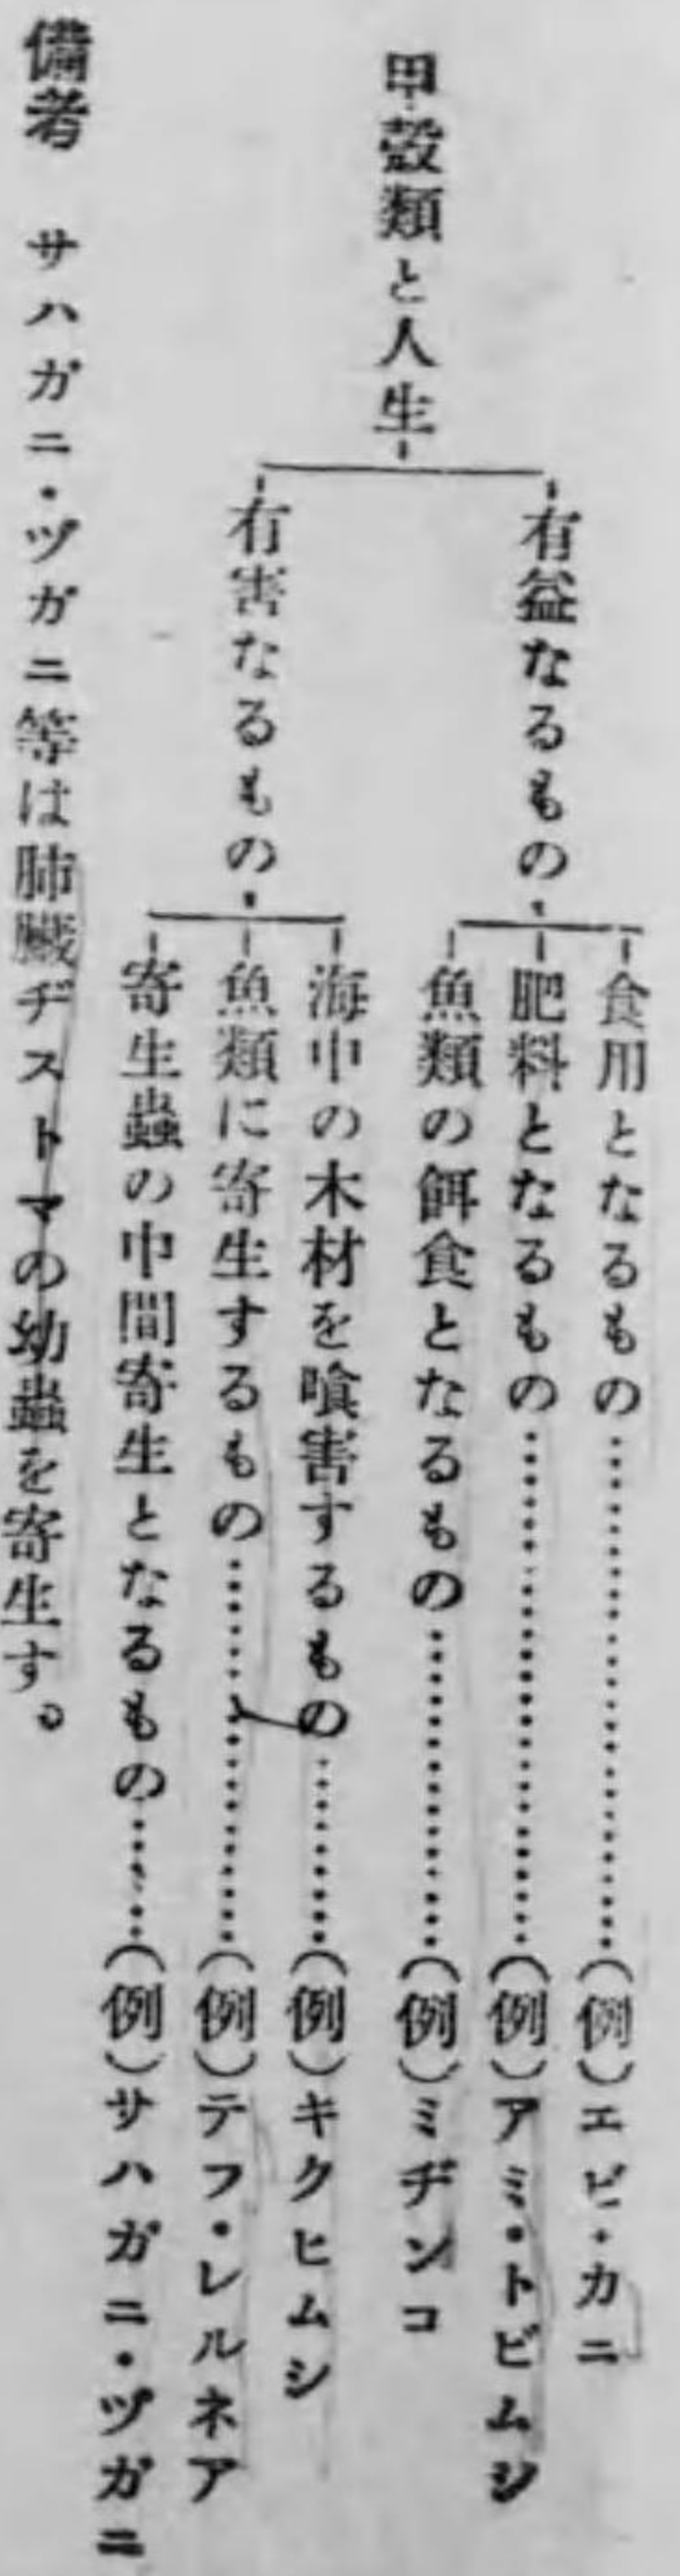 甲殼類と人生
有益なるもの
食用となるもの……………………(例)エビ・カニ
肥料となるもの……………………(例)アミ・トビムシ
魚類の餌食となるもの……………(例)ミヂンコ
有害なるもの
海中の木材を喰害するもの………(例)キクヒムシ
魚類に寄生するもの………………(例)テフ・レルネア
寄生蟲の中間寄生となるもの……(例)サハガニ・ヅガニ
備考 サハガニ・ヅガニ等は肺臟ヂストマの幼蟲を寄生す。